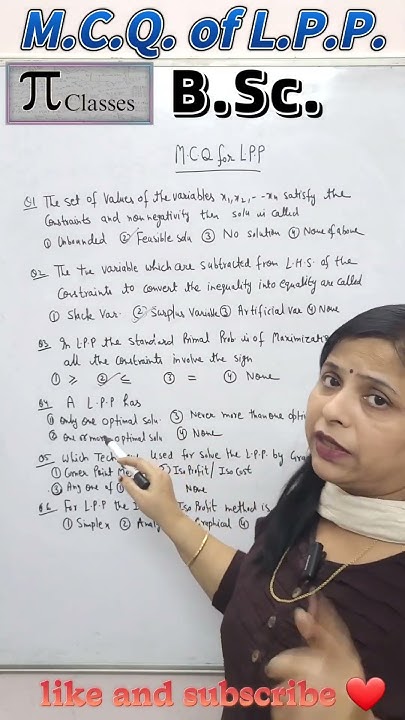 M.C.Q. of L.P.P.
π Classes
B.Sc.
M.C.Q for L.P.P
Q1 The set of values of the variables x1, x2, --- xn satisfy the
Constraints and nonnegativity then solu is called
① Unbounded ② Feasible solu ③ No solution ④ None of above
Q2. The +ve variable which are subtracted from L.H.S. of the
Constraints to convert the inequality into equality are called
① Slack Var. ② Surplus Variable ③ Artificial var ④ None
Q3. In L.P.P the Standard Primal Prob is of Maximization
all the constraints involve the sign
① ≥ ② ≤ ③ = ④ None
Q4. A L.P.P has
① only one optimal solu. ③ Never more than one opti
② one or more optimal solu ④ None
Q5. Which Tech used for solve the L.P.P. by Gra
① Corner Point Me ② Iso Profit / Iso Cost
③ Any one of ① None
Q6. For L.P.P the I Iso Profit method is
① Simplex ② Analy Graphical ④
like and subscribe ❤️